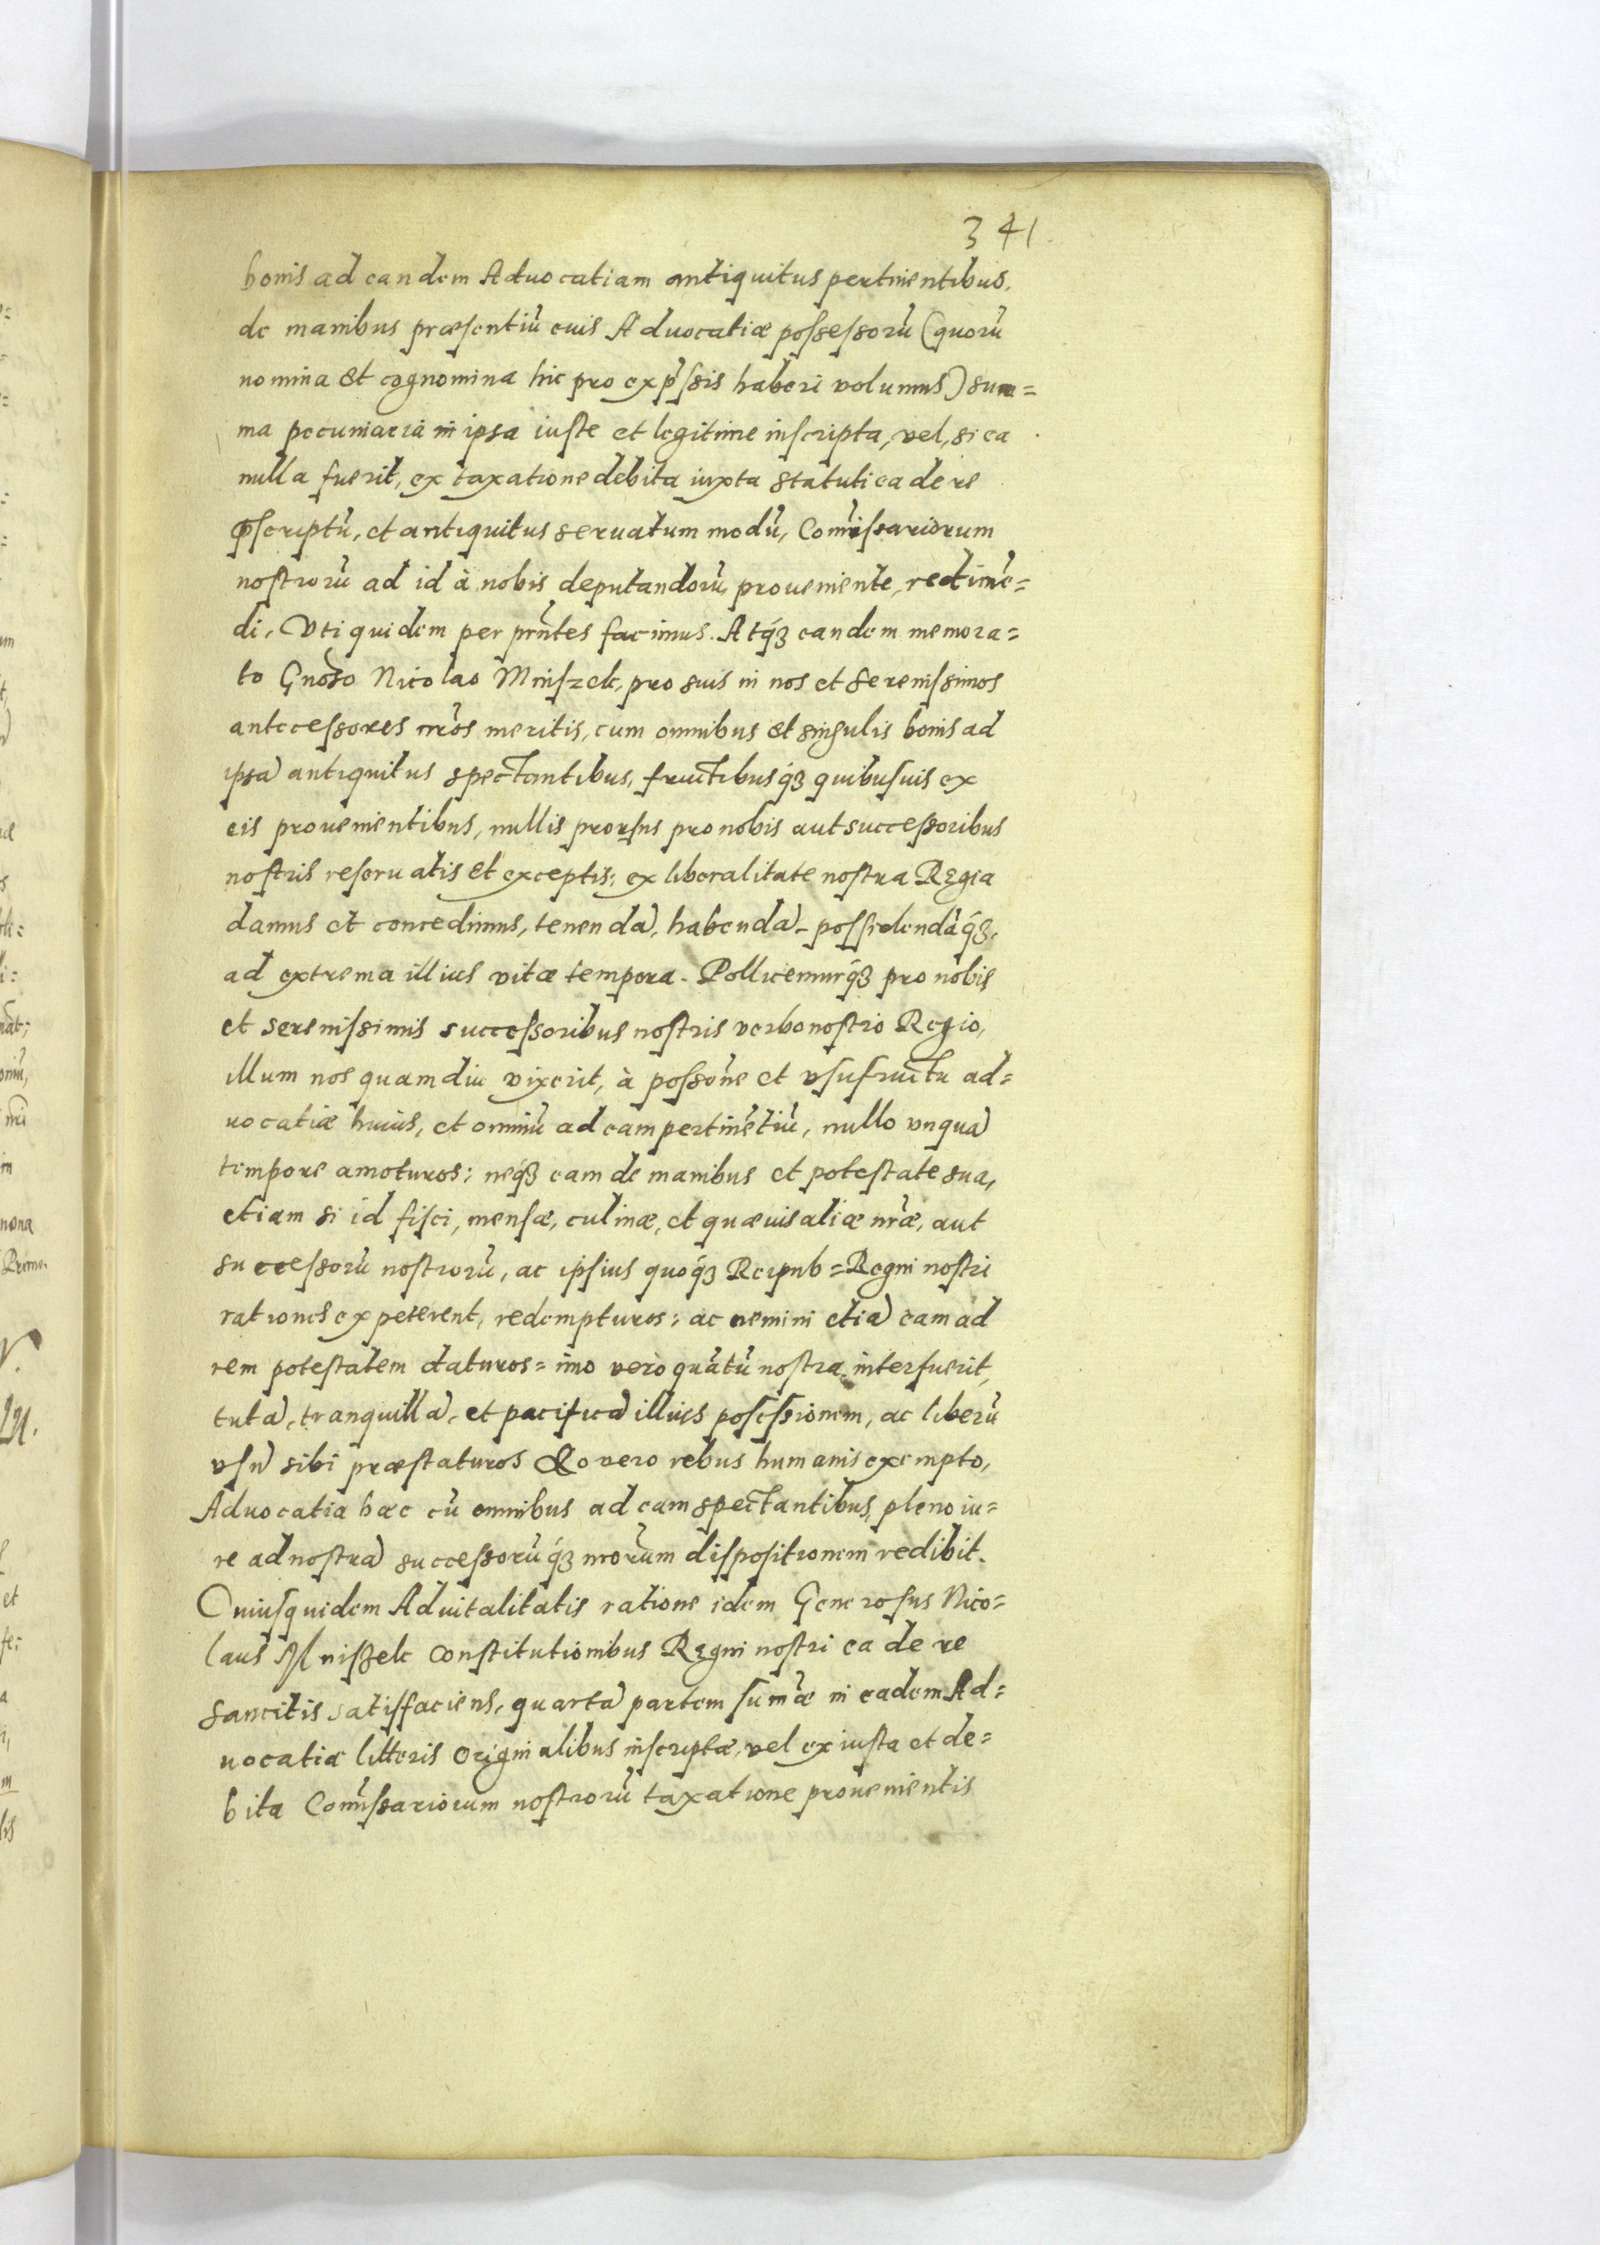 341.
bonis ad eandem Aduocatiam antiquitus pertinentibus,
de manibus præsentiũ euis Aduocatiæ possessorũ (quorũ
nomina et cognomina hic pro exp̃ssis haberi volumus) sum=
ma pecuniaria in ipsa iuste et legitime inscripta, vel, si ea
nulla fuerit, ex taxatione debita iuxta statuti ea de re
p̃scriptũ, et antiquitus seruatum modũ, Com̃issariorum
nostrorũ ad id à nobis deputandorũ, proueniente, redimẽ=
di, Vti quidem per prñtes facimus. Atq́ꝫ eandem memora=
to Gnõso Nicolao Mniszek, pro suis in nos et serenissimos
antecessores nr̃os meritis, cum omnibus et singulis bonis ad
ipsã antiquitus spectantibus, fructibusq́ꝫ quibusuis ex
eis prouenientibus, nullis prorsus pro nobis aut successoribus
nostris reseruatis et exceptis; ex liberalitate nostra Regia
damus et concedimus, tenendã, habendã, possidendãq́ꝫ,
ad extrema illius vitæ tempora. Pollicemurq́ꝫ pro nobis
et serenissimis successoribus nostris verbo nostro Regio,
illum nos quamdiu vixerit, à possõne et vsufructu ad=
uocatiæ huius, et omniũ ad eam pertinẽtiũ, nullo vnquã
tempore amoturos; neq́ꝫ eam de manibus et potestate sua,
etiam si id fisci, mensæ, culinæ, et quæuis aliæ nr̃æ, aut
successorũ nostrorũ, ac ipsius quoq́ꝫ Reipub= Regni nostri
rationes expeterent, redempturos; ac nemini etiã eam ad
rem potestatem daturos= imo vero quãtũ nostra interfuerit,
tutã, tranquillã, et pacificã illius posessionem, ac liberũ
vsũ sibi præstaturos Eo vero rebus humanis exempto,
Aduocatia hæc cũ omnibus ad eam spectantibus, pleno iu=
re ad nostrã successorũq́ꝫ nr̃orum dispositionem redibit.
Cuiusquidem Aduitalitatis ratione idem Generosus Nico=
laus Mniszek constitutionibus Regni nostri ea de re
sancitis satisfaciens, quartã partem sum̃æ in eadem Ad=
uocatia litteris originalibus inscriptæ, vel ex iusta et de=
bita Com̃issariorum nostrorũ taxatione prouenientis